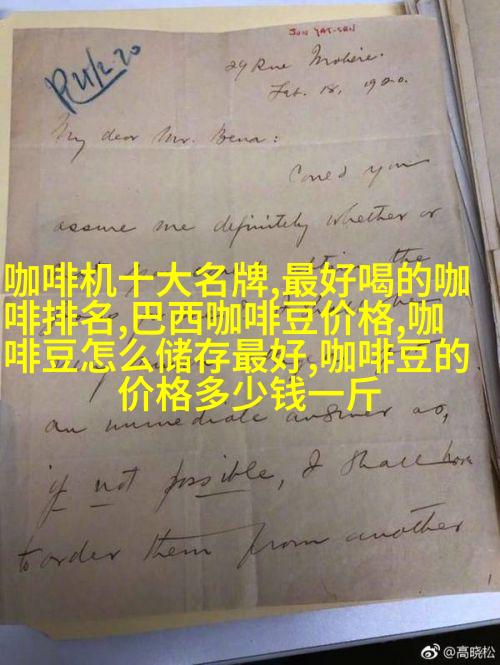 SUN YAT-SEN
R 21/2.20
29 Rue Molière.
Feb. 18, 1920.
My dear Mr. Bena:
Could you
assure me definitely whether or
咖啡机十大名牌,最好喝的咖
啡排名,巴西咖啡豆价格,咖
啡豆怎么储存最好,咖啡豆的
价格多少钱一斤
an immediate answer as,
if not possible, I shall have
to order them from another
@高晓松